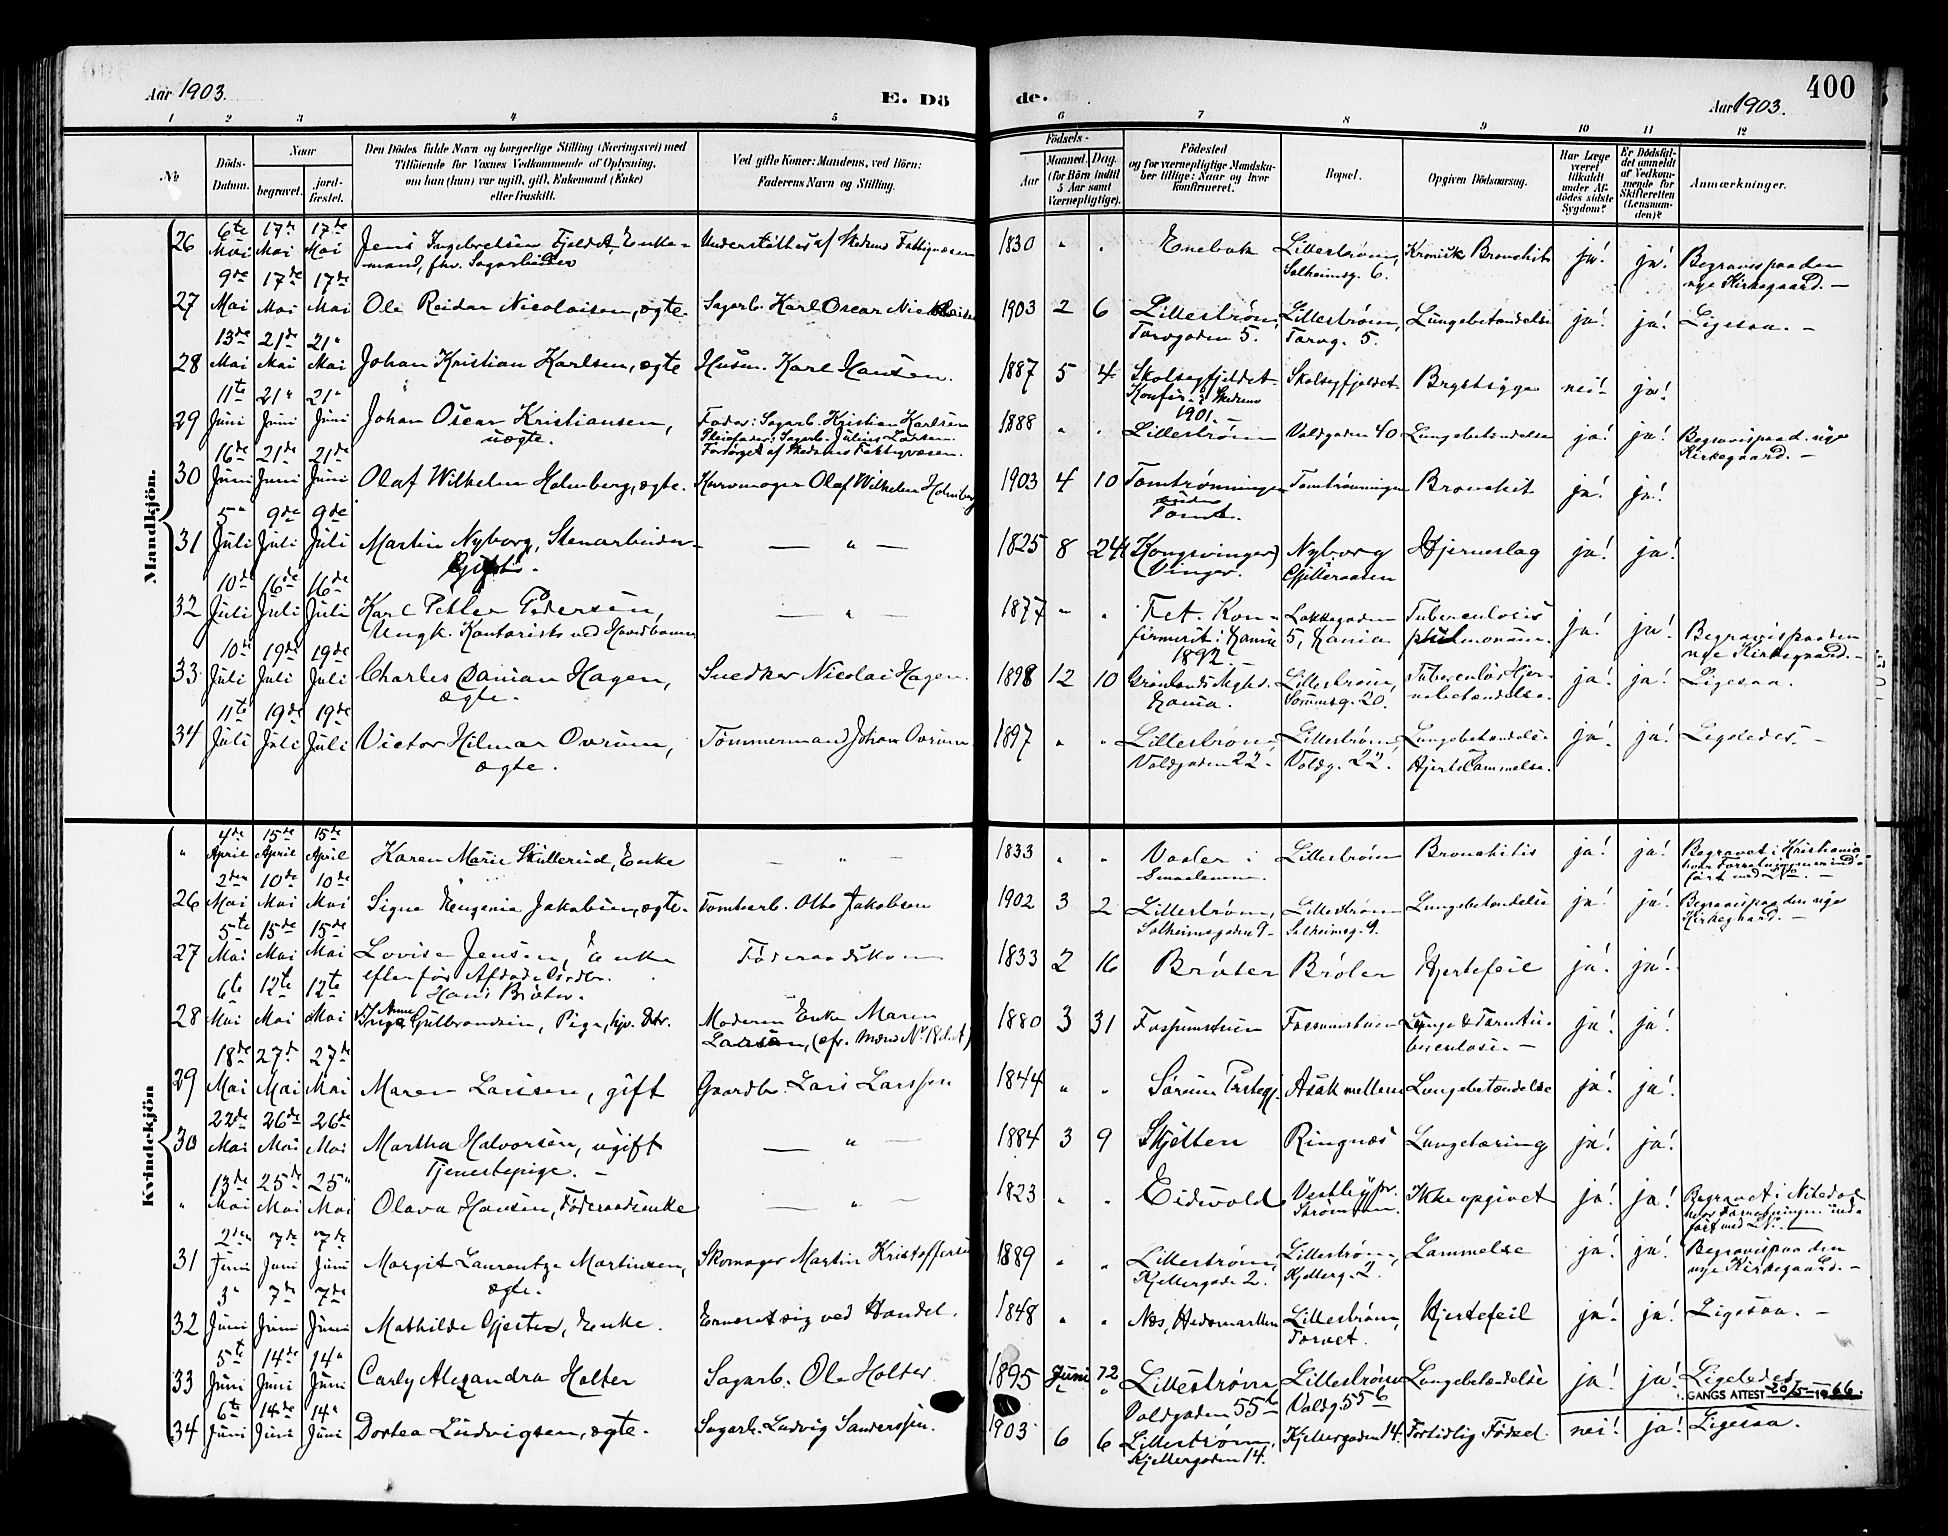 Aar 1903.
E. Dö
de.
Aar 1903.
400
1 2 3 4 5 6 7 8 9 10 11 12
No
Döds-
Datum.
Naar
begravet.
jord-
fæstet.
Den Dödes fulde Navn og borgerlige Stilling (Næringsvei) med
Tilföiende for Voxnes Vedkommende af Oplysning,
om han (hun) var ugift, gift, Enkemand (Enke)
eller fraskilt.
Ved gifte Koner: Mandens, ved Börn:
Faderens Navn og Stilling.
Födsels-
Aar
Maaned. Dag.
(for Börn indtil
5 Aar samt
Værnepligtige).
Födested
og for værnepligtige Mandska-
ber tillige: Naar og hvor
konfirmeret.
Bopæl.
Opgiven Dödsaarsag.
Har Læge
været
tilkaldt
under Af-
dödes sidste
Sygdom?
Er Dödsfal-
det anmeldt
af Vedkom-
mende for
Skifteretten
(Lensman-
den)?
Anmærkninger.
Mandkjön.
26 6te Mai 17de Mai 17de Mai Jens Ingebretsen Fjeldet, Enke- Understöttes af Skedsmo Fattigvæsen 1830 " " Enebak Lillestrøm, Kronisk Bronchit ja! ja! Begravet paa den
mand, fhv. Sagarbeider Solheimsg. 6. nye Kirkegaard. —
27 9de Mai 17de Mai 17de Mai Ole Reidar Nicolaisen, ægte. Sagarb. Karl Oscar Nicolaisen 1903 2 6 Lillestrøm, Lillestrøm, Lungebetændelse ja! ja! Ligesaa. —
Torvgaden 5. Torvg. 5.
28 13de Mai 21de Mai 21" Mai Johan Kristian Karlsen, ægte Husm. Karl Hansen. 1887 5 4 Skolsegfjeldet Skolsegfjeldet Brystsyge nei! ja!
Konfir. i Skedsmo
1901. —
29 11te Juni 21" Juni 21" Juni Johan Oscar Kristiansen, Fader: Sagarb. Kristian Karlsen 1888 " " Lillestrøm Voldgaden 40 Lungebetændelse ja! ja! Begravet paa d. nye
uægte. Pleiefader: Sagarb. Julius Larsen. Kirkegaard. —
Forsörget af Skedsmo Fattigvæsen.
30 16de Juni 21de Juni 21de Juni Olaf Wilhelm Holmberg, ægte. Kurvmager Olaf Wilhelm Holmberg 1903 4 10 Tomtrønningen Tomtrønningen Bronchit ja! ja!
under
Tomt.
31 5" Juli 9de Juli 9de Juli Martin Nyborg, Stenarbeider — " — 1825 8 24 (Kongsvinger) Nyborg Hjerneslag ja! ja!
Gift. Vinger.
32 10de Juli 16de Juli 16de Juli Karl Petter Pedersen, — " — 1877 " " Fet. Kon- Lakkegaden Tuberculosis ja! ja! Begravet paa den
Ungk. Kontorist ved Hovedbanen firmeret i Kania 5, Kania pulmonum. nye Kirkegaard. —
1892. —
33 10de Juli 19de Juli 19de Juli Charles Damian Hagen, Snedker Nicolai Hagen. 1898 12 10 Grønlands Mgh. Lillestrøm, Tuberculøs Hjer- ja! ja! Ligesaa.
ægte. Kania. 20. nebetændelse.
34 11te Juli 19de Juli 19de Juli Victor Hilmar Ovrum, Tømmermand Johan Ovrum 1897 " " Lillestrøm, Lillestrøm, Lungebetændelse ja! ja! Ligeledes. —
ægte. Voldgaden 22. Voldg. 22. Hjertelammelse.
Kvindekjön
" 4de April 15de April 15de April Karen Marie Skullerud, Enke — " — 1833 " " Vaaler i Lillestrøm Bronchitis ja! ja! Begravet i Kristiania
Smaalenene. hvor Forretningen er ind-
ført med No. —
26 2den Mai 10de Mai 10de Mai Signe Eugenia Jakobsen, ægte. Tomtarb. Otto Jakobsen 1902 3 2 Lillestrøm, Lillestrøm Lungebetændelse ja! ja! Begravet paa den nye
Solheimsgaden 9. Solheimsg. 9. Kirkegaard. —
27 5te Mai 15de Mai 15de Mai Lovise Jensen, Enke Föderaadskone 1833 2 16 Bråter Bråter Hjertefeil ja! ja!
efter før Afdøde
Hans Bråter.
28 6te Mai 12te Mai 12te Mai Inga Anna Gulbrandsen, Pige, hjv. Dtr. Moderen Enke Maren 1880 3 31 Fossumstuen Fossumstuen Lunge & Tarmtu- ja! ja!
Larsen, berculose. —
29 18de Mai 27de Mai 27de Mai Maren Larsen, gift Gaardbr. Lars Larssen 1844 " " Sørum Præstegj. Asak mellem Lungebetændelse ja! ja!
30 22de Mai 26de Mai 26de Mai Martha Halvorsen, ugift — " — 1884 3 9 Skjetten Ringnæs Lungetæring ja! ja!
Tjenestepige. —
" 13de Mai 25de Mai 25" Mai Olava Hansen, Föderaadsenke — " — 1823 " " Eidsvold Ikke opgivet ja! ja! Begravet i Nitedal
Strømmen. hvor Forretningen ind-
ført med No.
31 2den Juni 7de Juni 7de Juni Margit Laurentze Martinsen, Skomager Martin Kristoffersen 1889 " " Lillestrøm, Lillestrøm, Lammelse ja! ja! Begravet paa den
ægte. Kjellergade 2. Kjellerg. 2. nye Kirkegaard. —
32 3" Juni 7de Juni 7de Juni Mathilde Gjester, Enke. Ernæret sig ved Handel. 1848 " " Næs, Hedemarken Lillestrøm, Hjertefeil ja! ja! Ligesaa. —
Torvet.
33 5te Juni 14de Juni 14" Juni Carly Alexandra Holter Sagarb. Ole Holter 1895 Juni 12 Lillestrøm Lillestrøm Lungebetændelse ja! ja! Ligeledes
Voldgaden 55b Voldg. 55b GANGS ATTEST 20/5 – 1966.
34 6te Juni 14de Juni 14" Juni Dortea Ludvigsen, ægte. Sagarb. Ludvig Sanderssen. 1903 6 6 Lillestrøm, Kjellergaden 14. Fortidlig Födsel. nei! ja! Ligesaa.
Kjellergaden 14.